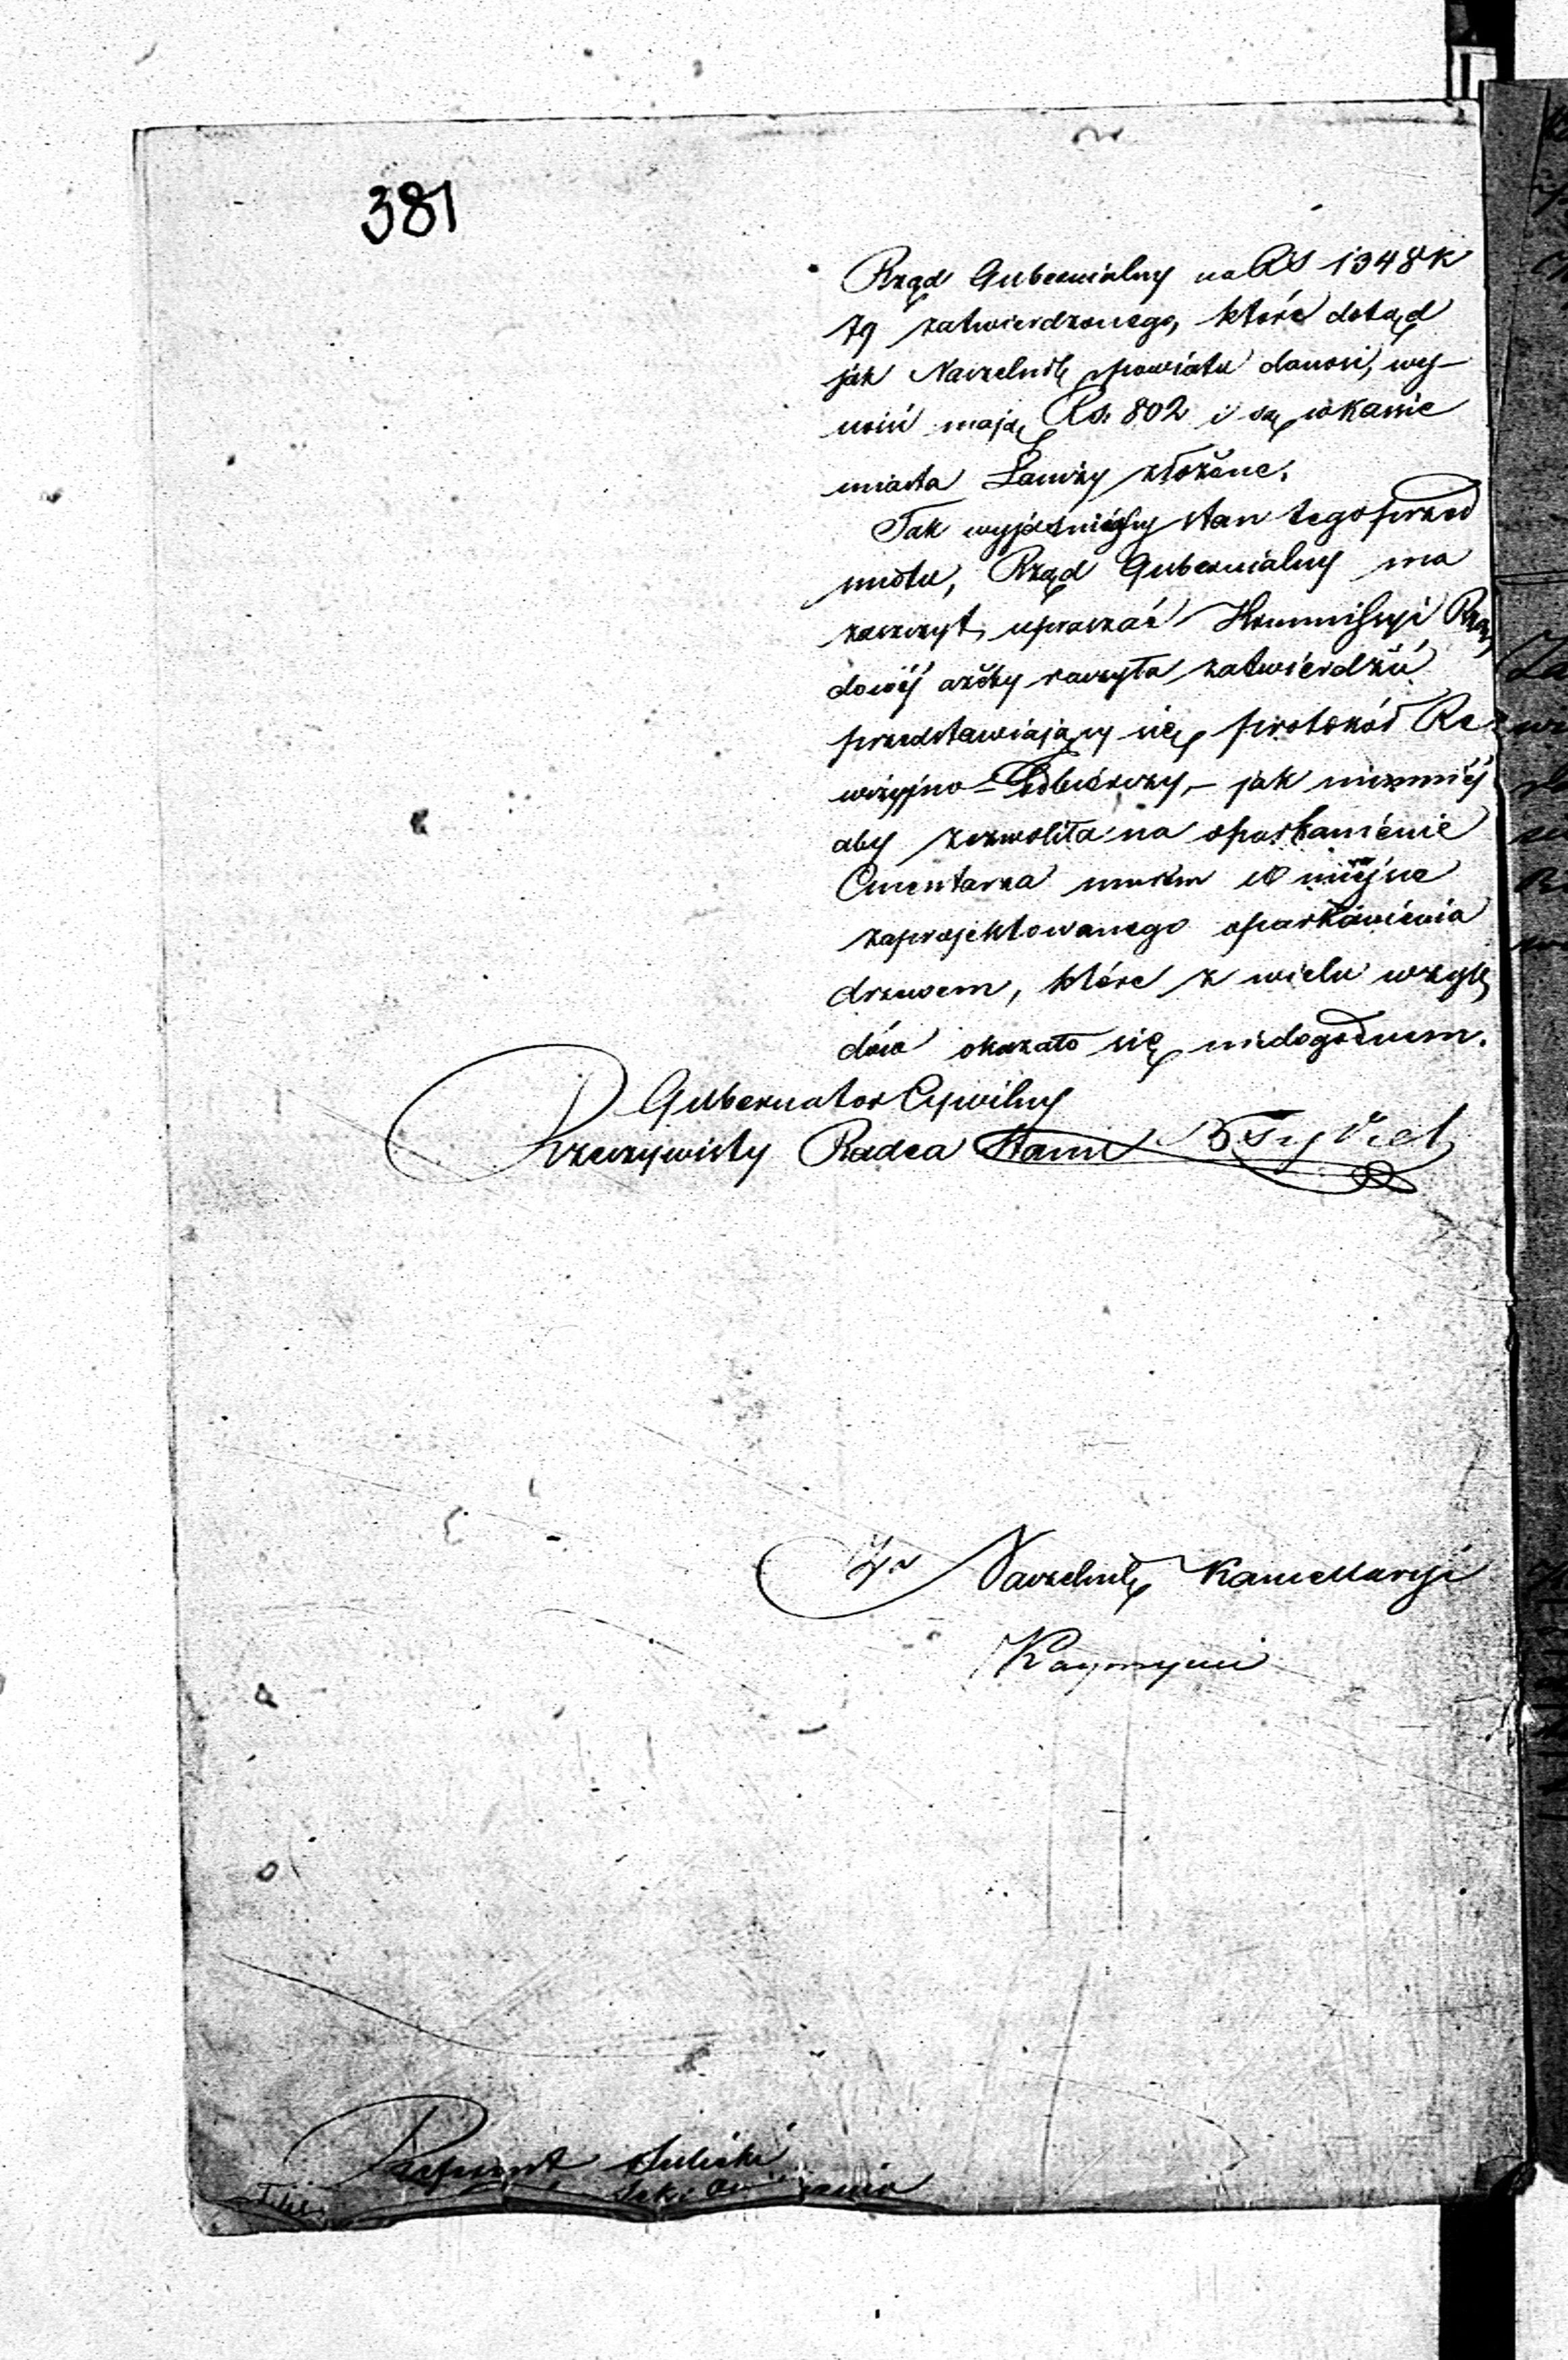 381
Rząd Gubernialny na RS 1348 K
79 zatwierdzonego, które dotąd
jak Naczelnik powiatu donosi, wy-
nosić mają Rs. 802 i są w kassie
miasta Łomży złożone.
Tak wyjaśniwszy stan tego przed
miotu, Rząd Gubernialny ma
zaszczyt upraszać Kommissyi Rzą
dowéj ażeby raczyła zatwierdzić
przedstawiający się protokół Re-
wizyjno-Odbiorczy, - jak niemniéj
aby zezwoliła na oparkanienie
Cmentarza murem w miejsce
zaprojektowanego oparkanienia
drzewem, które z wielu wzglę
dów okazało się niedogodnem.
Gubernator Cywilny
Rzeczywisty Radca Stanu
Naczelnik Kancellaryi
Referent